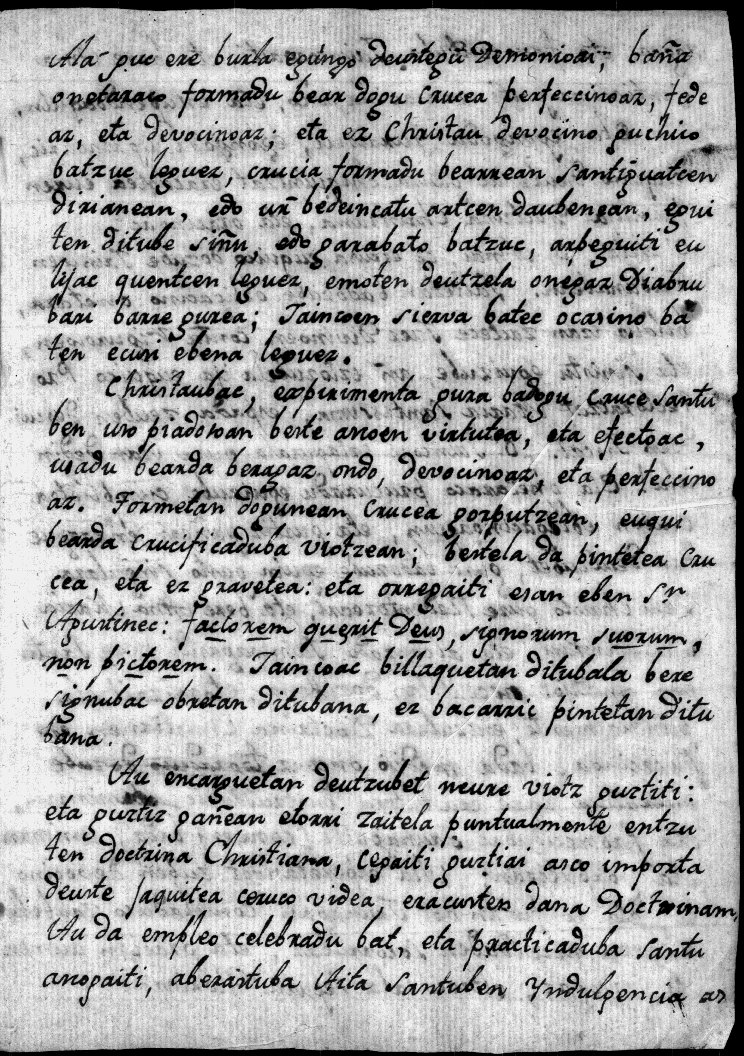 Ala puc ere burla egingo deustegũ Demonioai; baña
onetaraco formadu bear dogu crucea perfeccinoaz, fede
az, eta devocinoaz; eta ez Christau devocino guchico
batzuc leguez, crucia formadu bearrean santiguatcen
dirianean, edo ur bedeincatu artcen daubenean, egui
ten ditube siñu edo garabato batzuc, arpeguiti eu
lijac quentcen leguez, emoten deutzela onegaz Diabru
bari barre gurea; Jaincoen sierva batec ocasino ba
ten ecusi ebena leguez.
Christaubac, experimenta gura badogu cruce santu
ben uso piadosoan beste asco​en virtutea, eta efectoac,
usadu bearda beragaz ondo, devocinoaz, eta perfeccino
az. Formetan dogunean crucea gorputzean, euqui
bearda crucificaduba viotzean; bestela da pintetea cru
cea, eta ez gravetea: eta orregaiti esan eben Sn
Agustinec: factorem querit Deus, signorum suorum,
non pictorem. Jaincoac billaquetan ditubala bere
signubac obretan ditubana, ez bacarric pintetan ditu
bana.
Au encarguetan deutzubet neure viotz guztiti:
eta guztiz gañean etorri zaitela puntualmente entzu
ten doctrina Christiana, cegaiti guztiai asco importa
deuste jaquitea ceruco videa, eracusten dana Doctrinam,
Au da empleo celebradu bat, eta practicaduba santu
anogaiti, aberastuba Aita Santuben Yndulgencia as